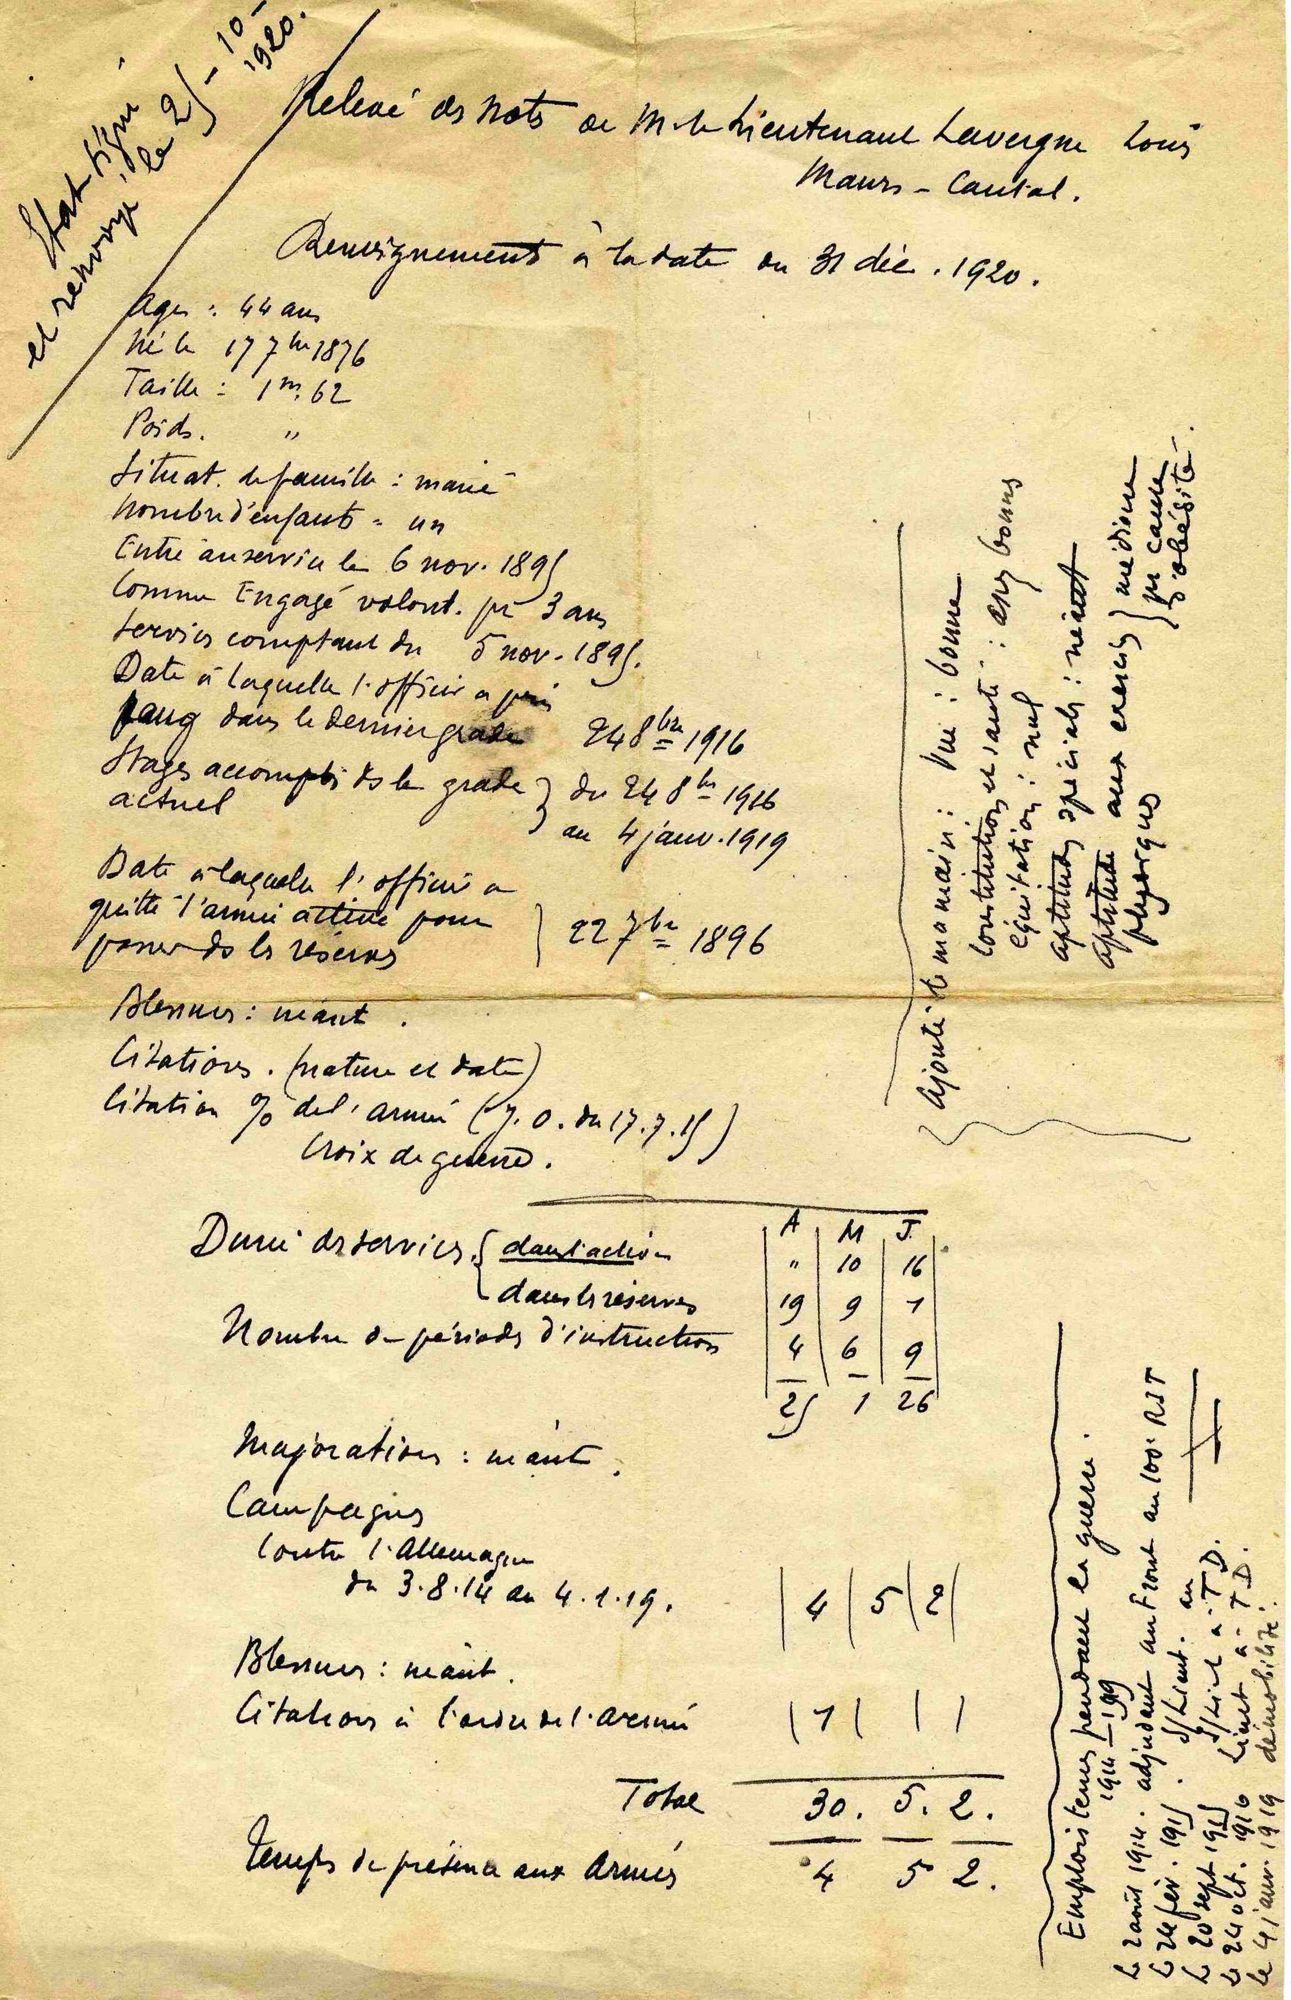 Etat signé
et renvoyé le 25-10-
1920.
Relevé des notes de Mr le Lieutenant Lavergne Louis
Maurs - Cantal.
Renseignements à la date du 31 déc. 1920.
Age : 44 ans
Né le 17 7bre 1876
Taille : 1m.62
Poids. "
Situat. de famille : marié
Nombre d'enfants = un
Entré au service le 6 nov. 1895
Comme Engagé volont. pr 3 ans
Services comptant du 5 nov. 1895.
Date à laquelle l'officier a pris
rang dans le dernier grade 24 8bre 1916
Stages accomplis ds le grade } du 24 8bre 1916
actuel
au 4 janv. 1919
Date à laquelle l'officier a
quitté l'armée active pour } 22 7bre 1896
passer ds les réserves
Blessures : néant.
Citations. (nature et date)
Citation % de l'armée (J.O. du 17.7.15)
Croix de guerre.
A M J.
Durée des services { dans l'active " 10 16
dans les réserves 19 9 1
Nombre de périodes d'instruction 4 6 9
25 1 26
Majorations : néant.
Campagnes
Contre l'Allemagne
du 3.8.14 au 4.1.19. 4 5 2
Blessures : néant.
Citations à l'ordre de l'Armée 1
Total 30. 5. 2.
Temps de présence aux Armées 4 5 2.
Ajouté de ma main : Vue : bonne
Constitution et santé : assez bonnes
équitation : nul
aptitudes spéciales : néant
aptitude aux exercices } médiocre
physiques } pr cause
d'obésité.
Emplois tenus pendant la guerre.
1914-1919
Le 2 août 1914. adjudant au Front au 100e RIT
Le 24 fév. 1915. S/Lieut. au
Le 20 sept 1915 S/Lieut à T.D.
Le 24 oct. 1916 Lieut à T.D.
Le 4 janv. 1919 démobilisé.